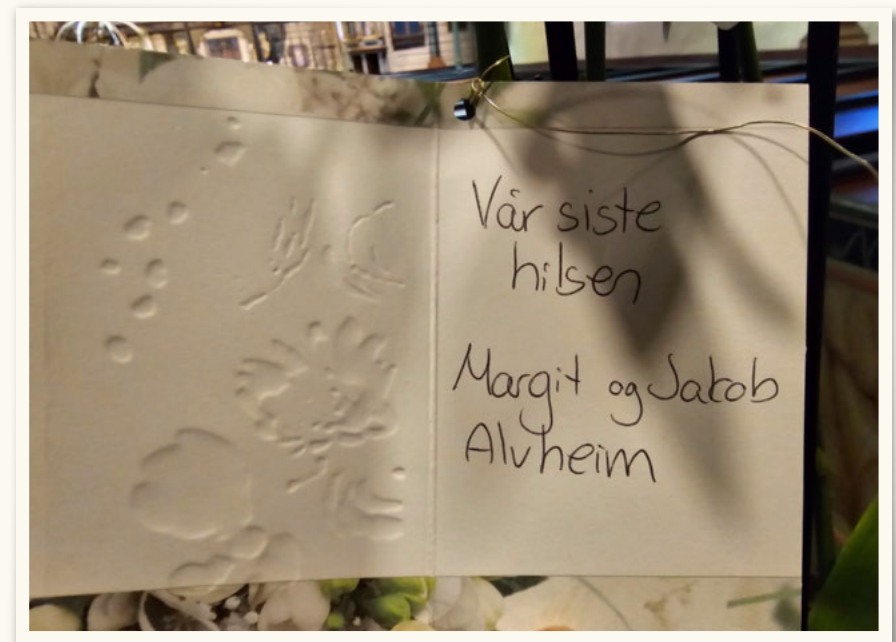 Vår siste
hilsen
Margit og Jakob
Alvheim